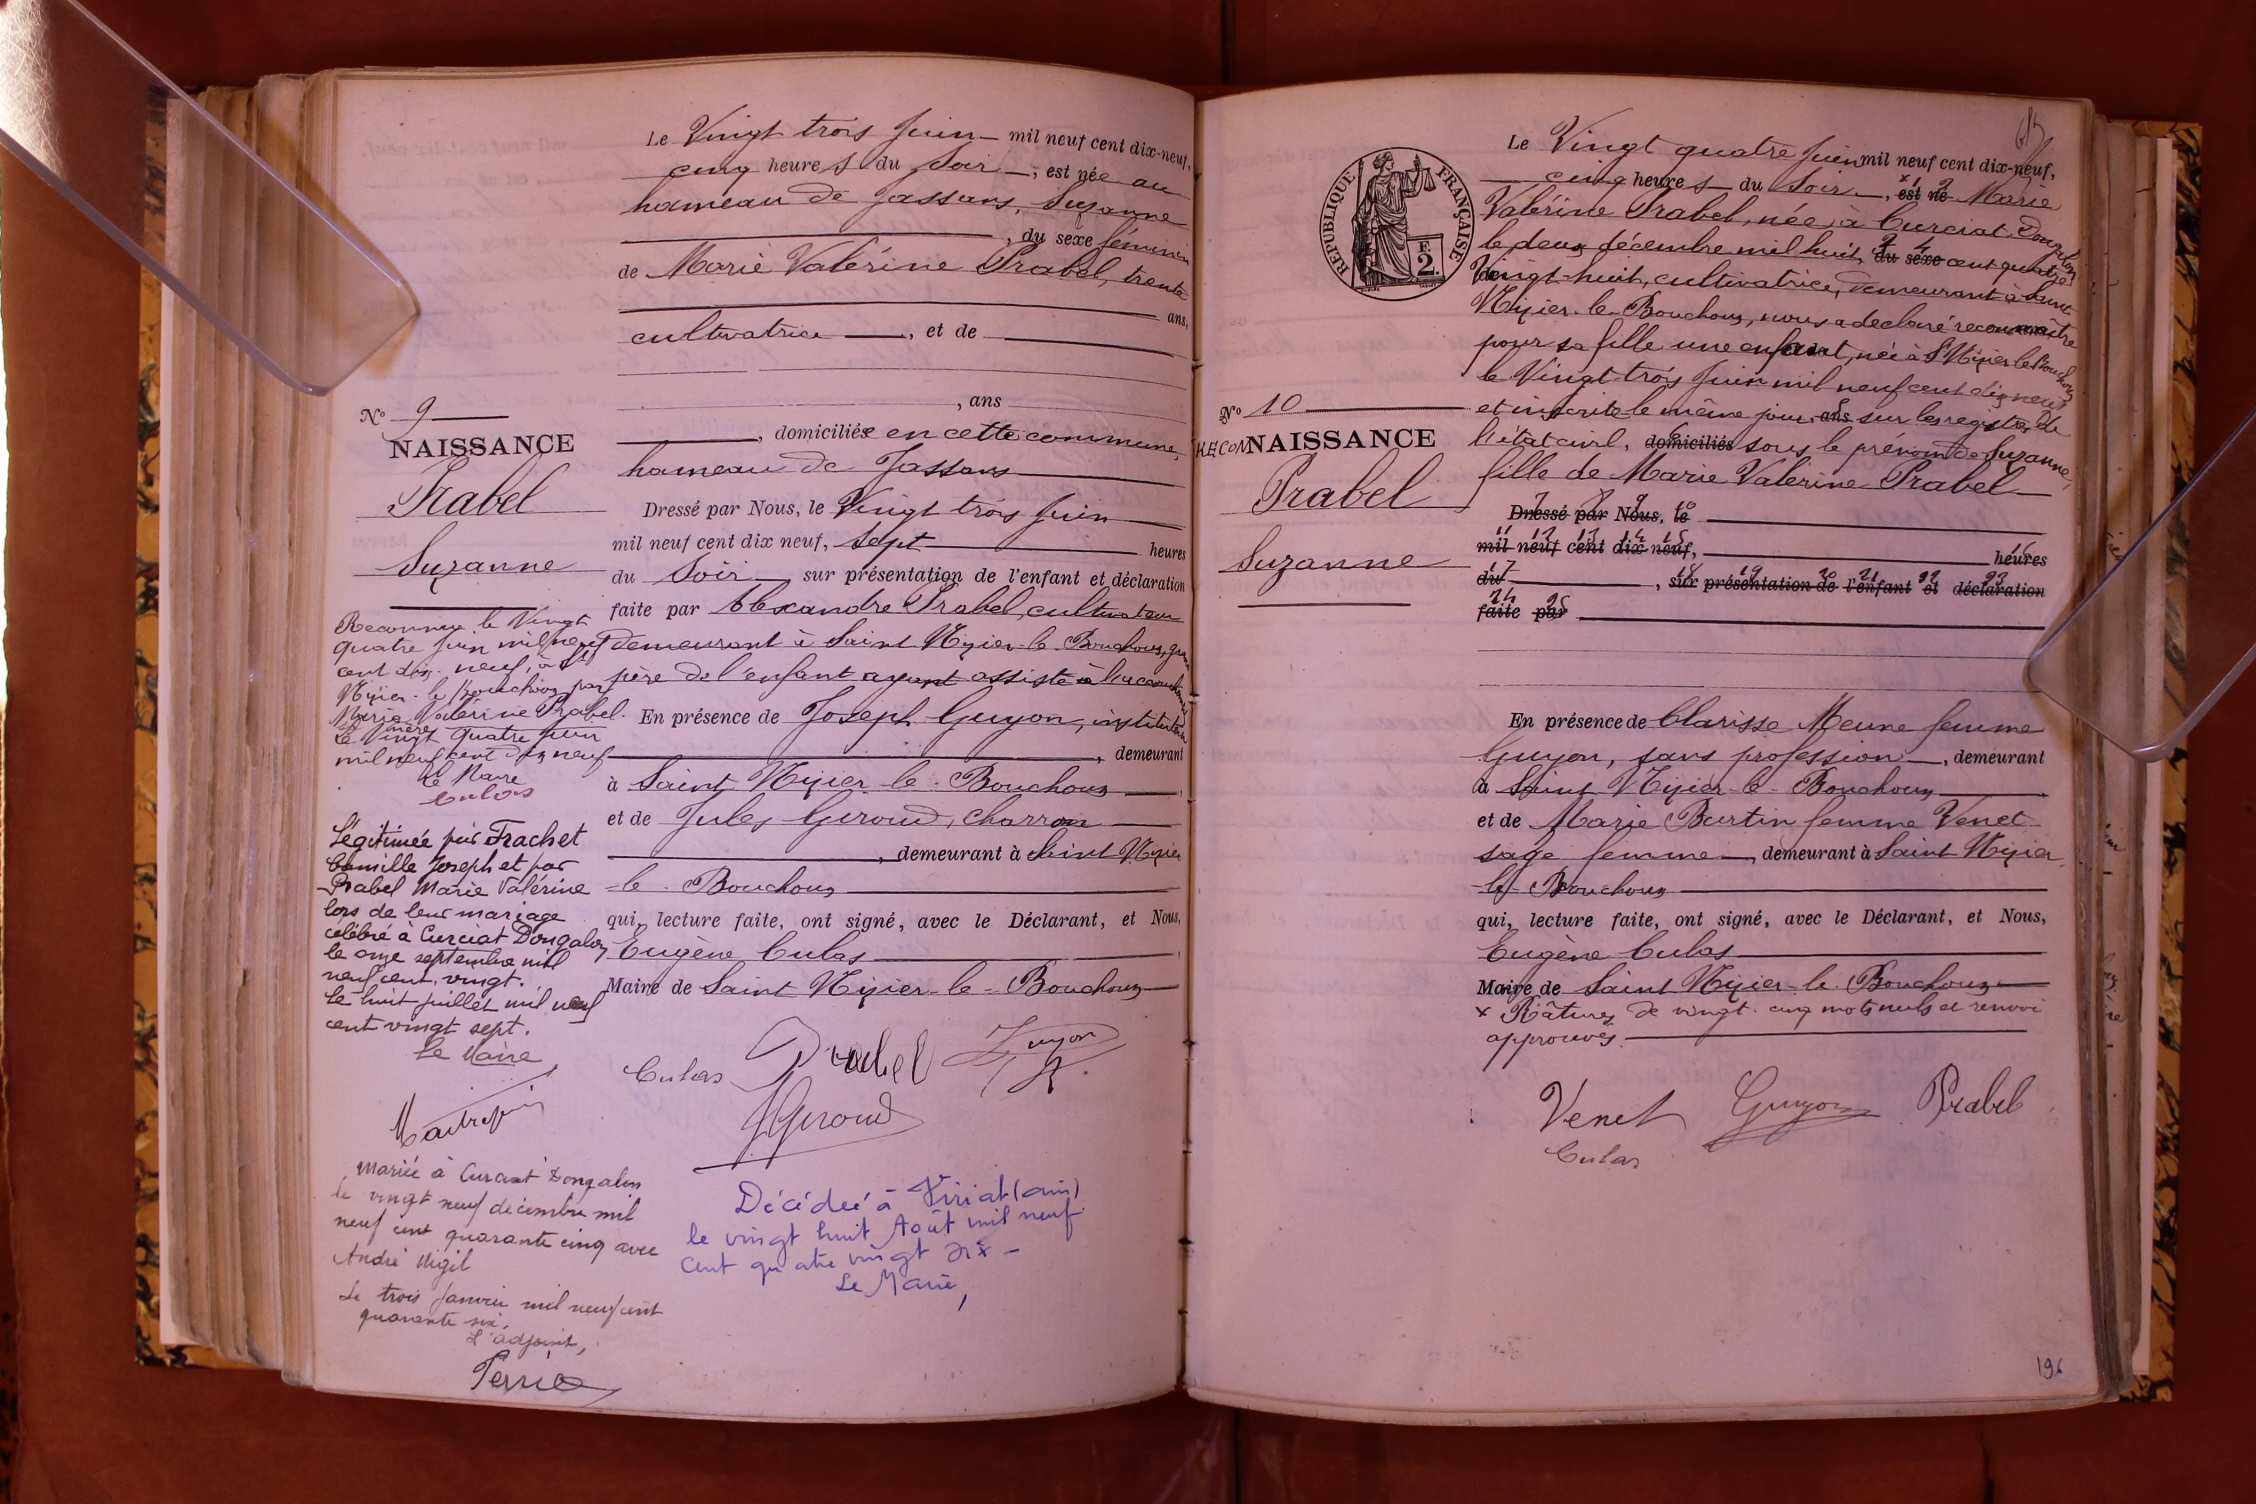 Le Vingt trois Juin mil neuf cent dix-neuf,
cinq heures du Soir, est née au
hameau de Jassans, Suzanne
, du sexe féminin
de Marie Valérine Prabel, trente
ans,
cultivatrice, et de
, ans
, domiciliée en cette commune,
hameau de Jassans
Dressé par Nous, le Vingt trois Juin
mil neuf cent dix neuf, sept heures
du Soir, sur présentation de l'enfant et déclaration
faite par Alexandre Prabel, cultivateur
demeurant à Saint Nizier-le-Bouchoux, grand
père de l'enfant ayant assisté à l'accouchement
En présence de Joseph Guyon, instituteur
, demeurant
à Saint Nizier-le-Bouchoux
et de Jules Giroud, charron
, demeurant à Saint Nizier
-le-Bouchoux
qui, lecture faite, ont signé, avec le Déclarant, et Nous,
Eugène Culas
Maire de Saint Nizier-le-Bouchoux
Culas Prabel Guyon
J Giroud
N° 9
NAISSANCE
Prabel
Suzanne
Reconnue le Vingt
quatre Juin mil neuf
cent dix-neuf, à St
Nizier-le-Bouchoux par
Marie Valérine Prabel.
Sa mère
Le Vingt quatre Juin
mil neuf cent dix neuf
Le Maire
Culas
Légitimée par Frachet
Camille Joseph et par
Prabel Marie Valérine
lors de leur mariage
célébré à Curciat Dongalon
le onze septembre mil
neuf cent vingt.
Le huit juillet mil neuf
cent vingt sept.
Le Maire
Mariée à Curciat Dongalon
le vingt neuf décembre mil
neuf cent quarante cinq avec
André Migil
Le trois Janvier mil neuf cent
quarante six.
L'adjoint,
Décédée à Viriat (ain)
le vingt huit Août mil neuf
cent quatre vingt dix -
Le Maire,
RÉPUBLIQUE FRANÇAISE
F.
2.
Le Vingt quatre Juin mil neuf cent dix-neuf,
cinq heures du Soir, x est né Marie
Valérine Prabel, née à Curciat Dongalon
le deux décembre mil huit du sexe cent quatre
Vingt-huit, cultivatrice, demeurant à Saint
Nizier-le-Bouchoux, nous a déclaré reconnaître
pour sa fille une enfant, née à St Nizier le Bouchoux
le Vingt-trois Juin mil neuf cent dix neuf
et inscrite le même jour, ans sur les registres de
l'état civil, domiciliés sous le prénom de Suzanne,
fille de Marie Valérine Prabel
Dressé par Nous, le
mil neuf cent dix neuf, heures
du , sur présentation de l'enfant et déclaration
faite par
En présence de Clarisse Meune femme
Guyon, sans profession, demeurant
à Saint Nizier-le-Bouchoux
et de Marie Burtin femme Venet
sage femme, demeurant à Saint Nizier-
le-Bouchoux
qui, lecture faite, ont signé, avec le Déclarant, et Nous,
Eugène Culas
Maire de Saint Nizier-le-Bouchoux
x Râtures de vingt-cinq mots nuls et renvoi
approuvés.
Venet Guyon Prabel
Culas
N° 10
RECONNAISSANCE
Prabel
Suzanne
196